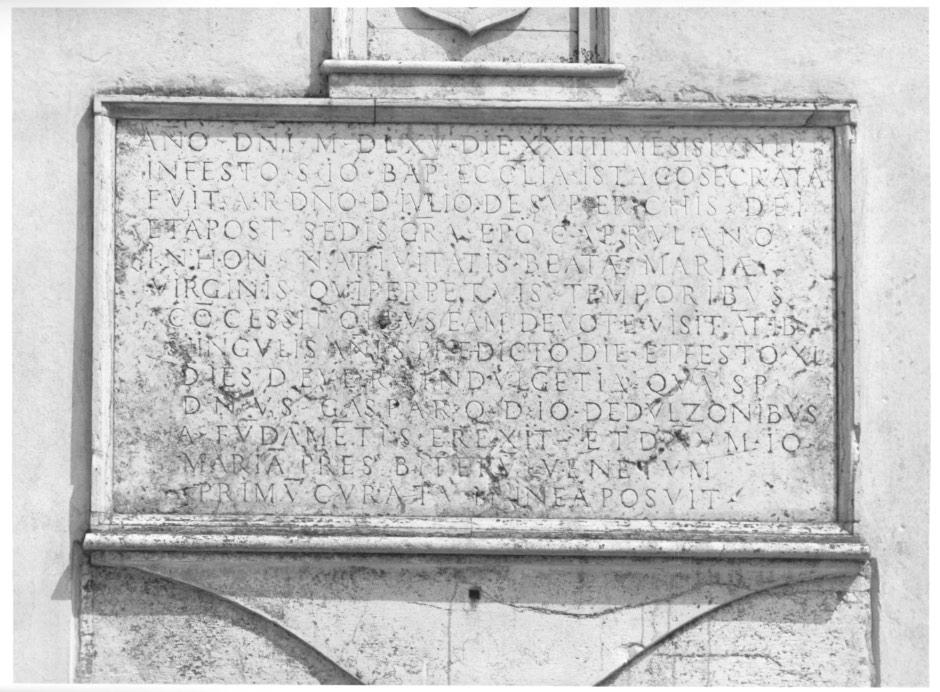 ANO · DNI · M · DLXV · DIE XXIIII MESIS IVNII
IN FESTO S · IO · BAP · ECCLIA · ISTA COSECRATA
FVIT · A · R · DNO · D · IVLIO · DE SVPERCHIS · DEI
ET APOST · SEDIS GRA · EPO CAPRVLANO
IN HON · NATIVITATIS · BEATÆ MARIÆ
VIRGINIS · QVI PERPETVIS · TEMPORIBVS
COCESSIT OIBVS EAM DEVOTE VISITATIB
SINGVLIS ANIS PREDICTO DIE · ET FESTO XL
DIES D E VERA INDVLGETIA · QVA SP
DNVS · GASPAR · Q · D · IO · DEDVLZONIBVS
A · FVDAMETIS · EREXIT · ET D M · IO
MARIA PRESBITERV · VENETVM
PRIMV CVRATV IN EA POSVIT